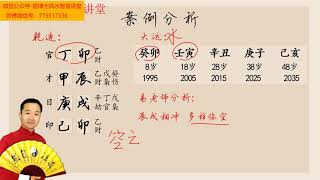 微信公众号-易博士风水智慧讲堂
老师微信号：773517536
讲堂
案例分析
乾造：
大运 水
官 丁 卯 乙财
癸卯 壬寅 辛丑 庚子 己亥
8岁 18岁 28岁 38岁 48岁
才 甲 辰 乙戊癸 财枭伤
1995 2005 2015 2025 2035
日 庚 戌 辛丁戊 劫官枭
易老师分析：
辰戌相冲 多柱临空
印 己 卯 乙财
空亡